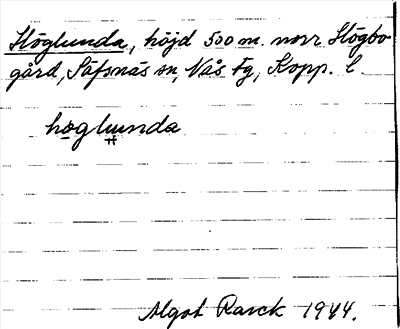 Höglunda, höjd 500 m. norr Högbo-
gård, Säfsnäs sn, Nås Fg, Kopp. l.
höglunda
Algot Rarck 1944.